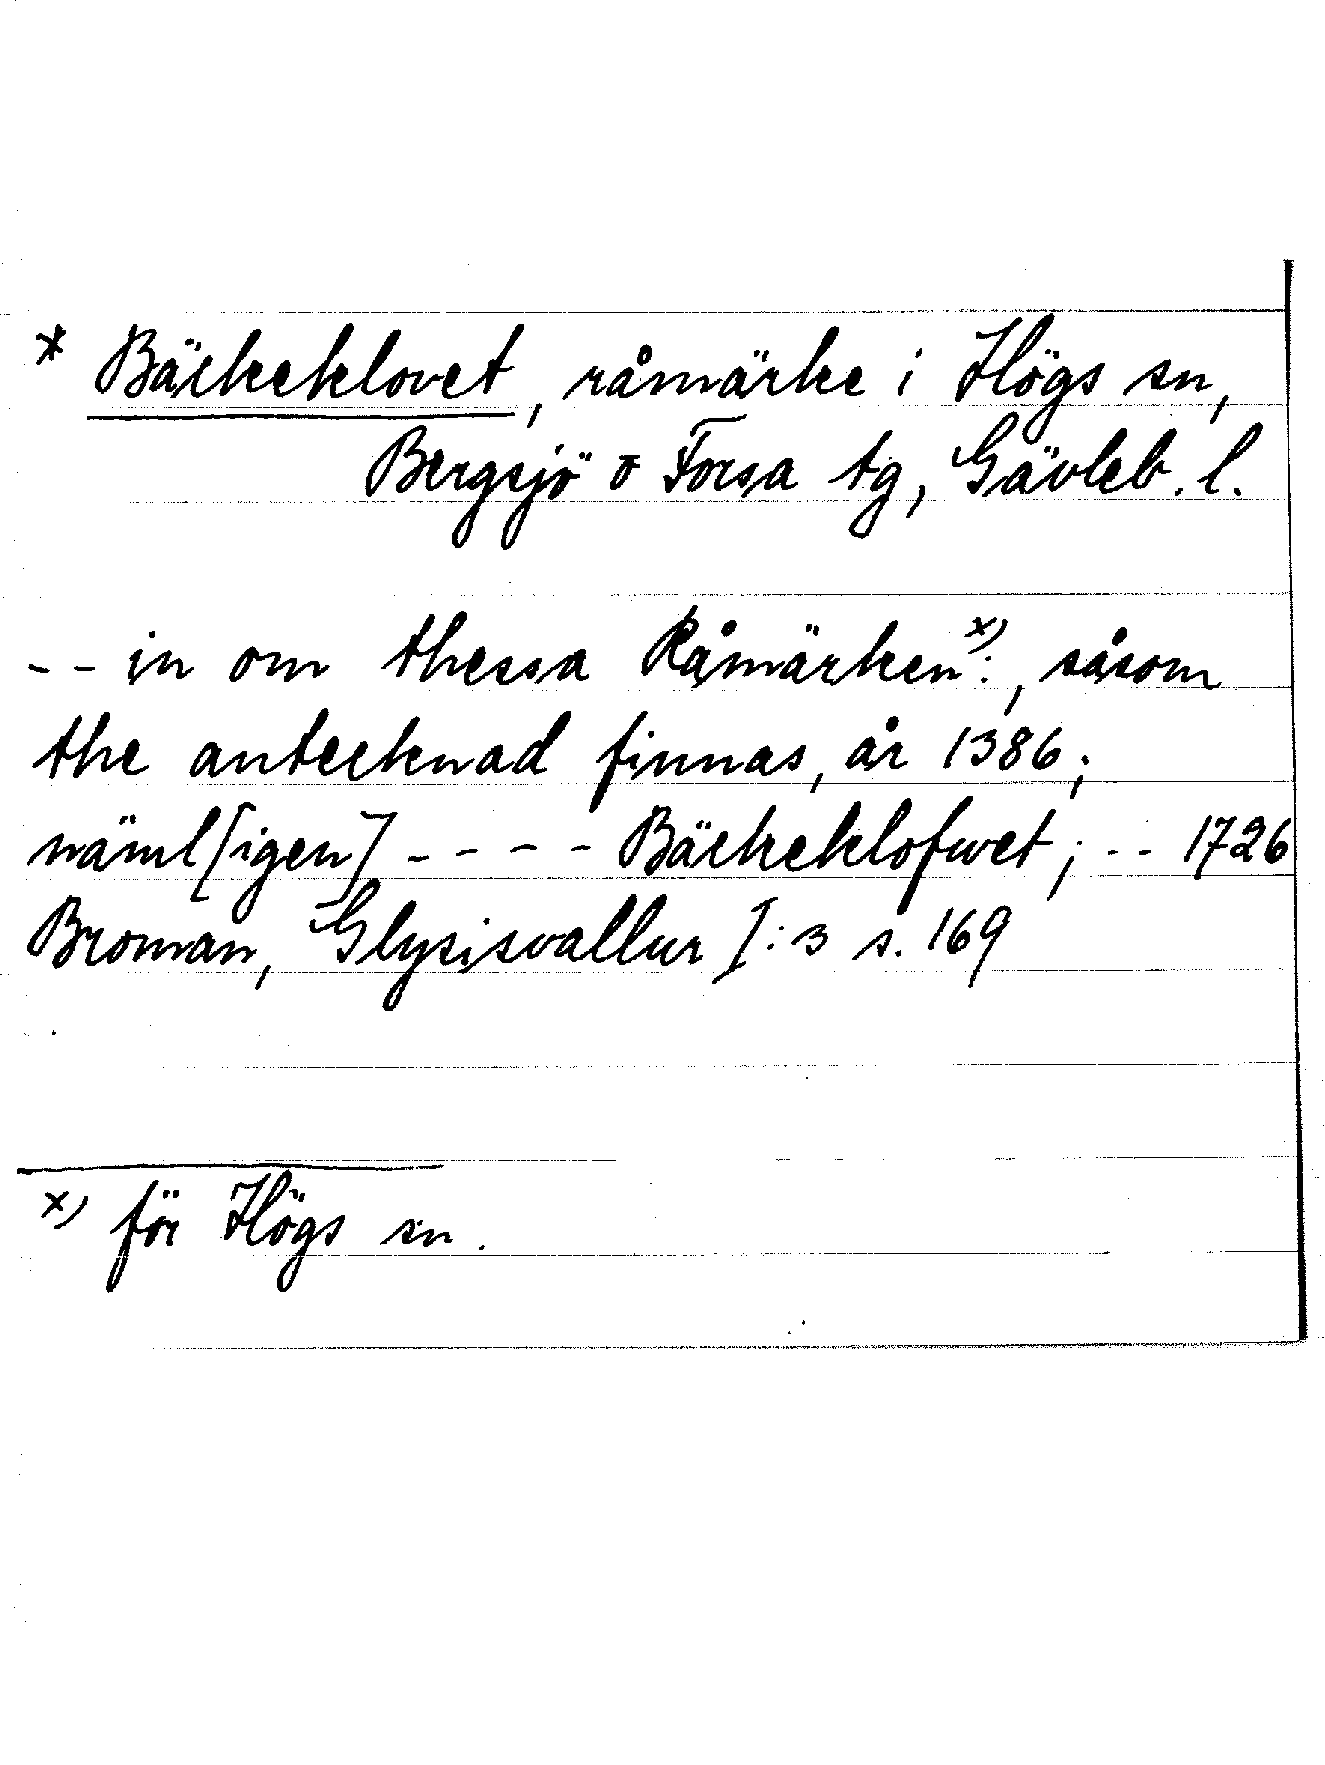 * Bäckeklovet, råmärke i Högs sn,
Bergsjö o Forsa tg, Gävleb. l.
-- in om thessa Råmärken x):, såsom
the antecknad finnas, år 1386;
näml[igen] ---- Bäckeklofwet; -- 1726
Broman, Glysisvallur I:3 s. 169
x) för Högs sn.